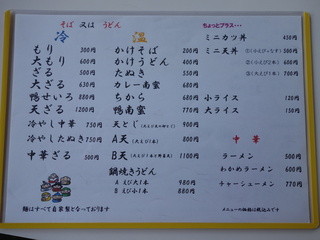 そば 又は うどん
冷
もり 300円
大もり 400円
ざる 500円
大ざる
鴨せいろ 880円
天ざる
冷やし中華 750円
冷やしたぬき 750円
中華ざる 500円
麺はすべて自家製となっております
温
かけそば 300円
かけうどん 400円
たぬき 550円
カレー南蛮 680円
ちから 680円
鴨南蛮 770円
天とじ
A天 800円
B天 1100円
鍋焼きうどん
A えび大1本 980円
B えび小1本 880円
ちょっとプラス・・・
ミニカツ丼 450円
ミニ天丼
小ライス 120円
大ライス 150円
中華
ラーメン 500円
わかめラーメン 600円
チャーシューメン 770円
メニューの価格は税込みです